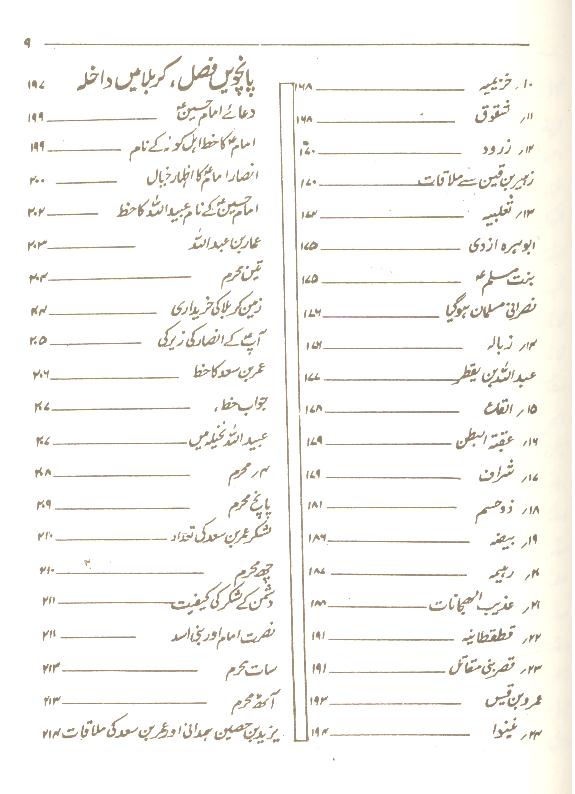 ۹
۱۰۔ خزیمیہ ۱۶۸
۱۱۔ شقوق ۱۶۸
۱۲۔ زرود ۱۷۰
زہیر بن قین سے ملاقات ۱۷۰
۱۳۔ ثعلبیہ ۱۷۲
ابوہرہ ازدی ۱۷۵
بنت مسلم ؑ ۱۷۵
نصرانی مسلمان ہوگیا ۱۷۶
۱۴۔ زبالہ ۱۷۶
عبداللہ بن یقطر ۱۷۷
۱۵۔ القاع ۱۷۸
۱۶۔ عقبۃ البطن ۱۷۹
۱۷۔ شراف ۱۷۹
۱۸۔ ذوحسم ۱۸۱
۱۹۔ بیضہ ۱۸۶
۲۰۔ رہیمہ ۱۸۷
۲۱۔ عذیب الہجانات ۱۸۸
۲۲۔ قطقطانیہ ۱۹۱
۲۳۔ قصر بنی مقاتل ۱۹۱
عمرو بن قیس ۱۹۳
۲۴۔ نینوا ۱۹۴
پانچویں فصل، کربلا میں داخلہ ۱۹۷
دعائے امام حسین ؑ ۱۹۹
امام ؑ کا خط اہل کوفہ کے نام ۱۹۹
انصار امام ؑ کا اظہار خیال ۲۰۰
امام حسین ؑ کے نام عبیداللہ کا خط ۲۰۲
عمار بن عبداللہ ۲۰۳
تین محرم ۲۰۴
زمین کربلا کی خریداری ۲۰۴
آپ ؑ کے انصار کی زیرکی ۲۰۵
عمر بن سعد کا خط ۲۰۶
جواب خط، ۲۰۷
عبیداللہ نخیلہ میں ۲۰۷
۴۔ محرم ۲۰۸
پانچ محرم ۲۰۹
لشکر عمر بن سعد کی تعداد ۲۱۰
چھ محرم ۲۱۰
دشمن کے لشکر کی کیفیت ۲۱۱
نصرت امام اور بنی اسد ۲۱۱
سات محرم ۲۱۳
آٹھ محرم ۲۱۳
یزید بن حصین ہمدانی اور عمر بن سعد کی ملاقات ۲۱۴